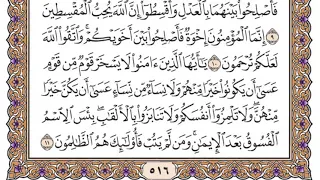 فَأَصْلِحُوا۟ بَيْنَهُمَا بِٱلْعَدْلِ وَأَقْسِطُوٓا۟ ۖ إِنَّ ٱللَّهَ يُحِبُّ ٱلْمُقْسِطِينَ
٩ إِنَّمَا ٱلْمُؤْمِنُونَ إِخْوَةٌ فَأَصْلِحُوا۟ بَيْنَ أَخَوَيْكُمْ ۚ وَٱتَّقُوا۟ ٱللَّهَ
لَعَلَّكُمْ تُرْحَمُونَ ١٠ يَٰٓأَيُّهَا ٱلَّذِينَ ءَامَنُوا۟ لَا يَسْخَرْ قَوْمٌ مِّن قَوْمٍ
عَسَىٰٓ أَن يَكُونُوا۟ خَيْرًا مِّنْهُمْ وَلَا نِسَآءٌ مِّن نِّسَآءٍ عَسَىٰٓ أَن يَكُنَّ خَيْرًا
مِّنْهُنَّ ۖ وَلَا تَلْمِزُوٓا۟ أَنفُسَكُمْ وَلَا تَنَابَزُوا۟ بِٱلْأَلْقَٰبِ ۖ بِئْسَ ٱلِٱسْمُ
ٱلْفُسُوقُ بَعْدَ ٱلْإِيمَٰنِ ۚ وَمَن لَّمْ يَتُبْ فَأُو۟لَٰٓئِكَ هُمُ ٱلظَّٰلِمُونَ ١١
٥١٦